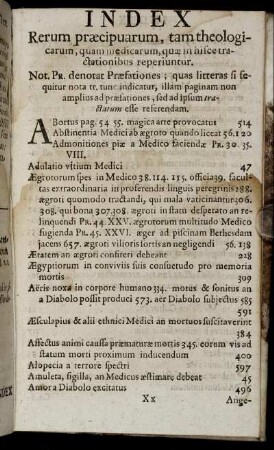 INDEX
Rerum præcipuarum, tam theologi-
carum, quam medicarum, quæ in hisce tra-
ctationibus reperiuntur.
Not. Pr. denotat Præfationes; quas litteras si se-
quitur nota tr. tunc indicatur, illam paginam non
amplius ad præfationes, sed ad ipsum tra-
ctatum esse referendam.
ABortus pag. 54 55. magica arte provocatus 514
Abstinentia Medici ab ægroto quando liceat 56. 120
Admonitiones piæ a Medico faciendæ Pr. 30. 35.
VIII.
Adulatio vitium Medici 47
Ægrotorum spes in Medico 38. 114. 115. officia 39. facul-
tas extraordinaria in proferendis linguis peregrinis 288.
ægroti quomodo tractandi, qui mala vaticinantur 306.
308. qui bona 307. 308. ægroti in statu desperato an re-
linquendi Pr. 44. XXV. ægrotorum multitudo Medico
fugienda Pr. 45. XXVI. æger ad piscinam Bethesdam
jacens 657. ægroti viliori sortis an negligendi 56. 138
Ætatem an ægroti confiteri debeant 228
Ægyptiorum in conviviis suis consuetudo pro memoria
mortis 399
Aërie noxæ in corpore humano 334. motus & sonitus an
a Diabolo possit produci 573. aer Diabolo subjectus 585
591
Æsculapius & alii ethnici Medici an mortuos suscitaverint
184
Affectus animi caussa præmaturæ mortis 345. eorum vis ad
statum morti proximum inducendum 400
Alopecia a terrore spectri 597
Amuleta, sigilla, an Medicus æstimare debeat 45
Amor a Diabolo excitatus 496
Xx Ange-